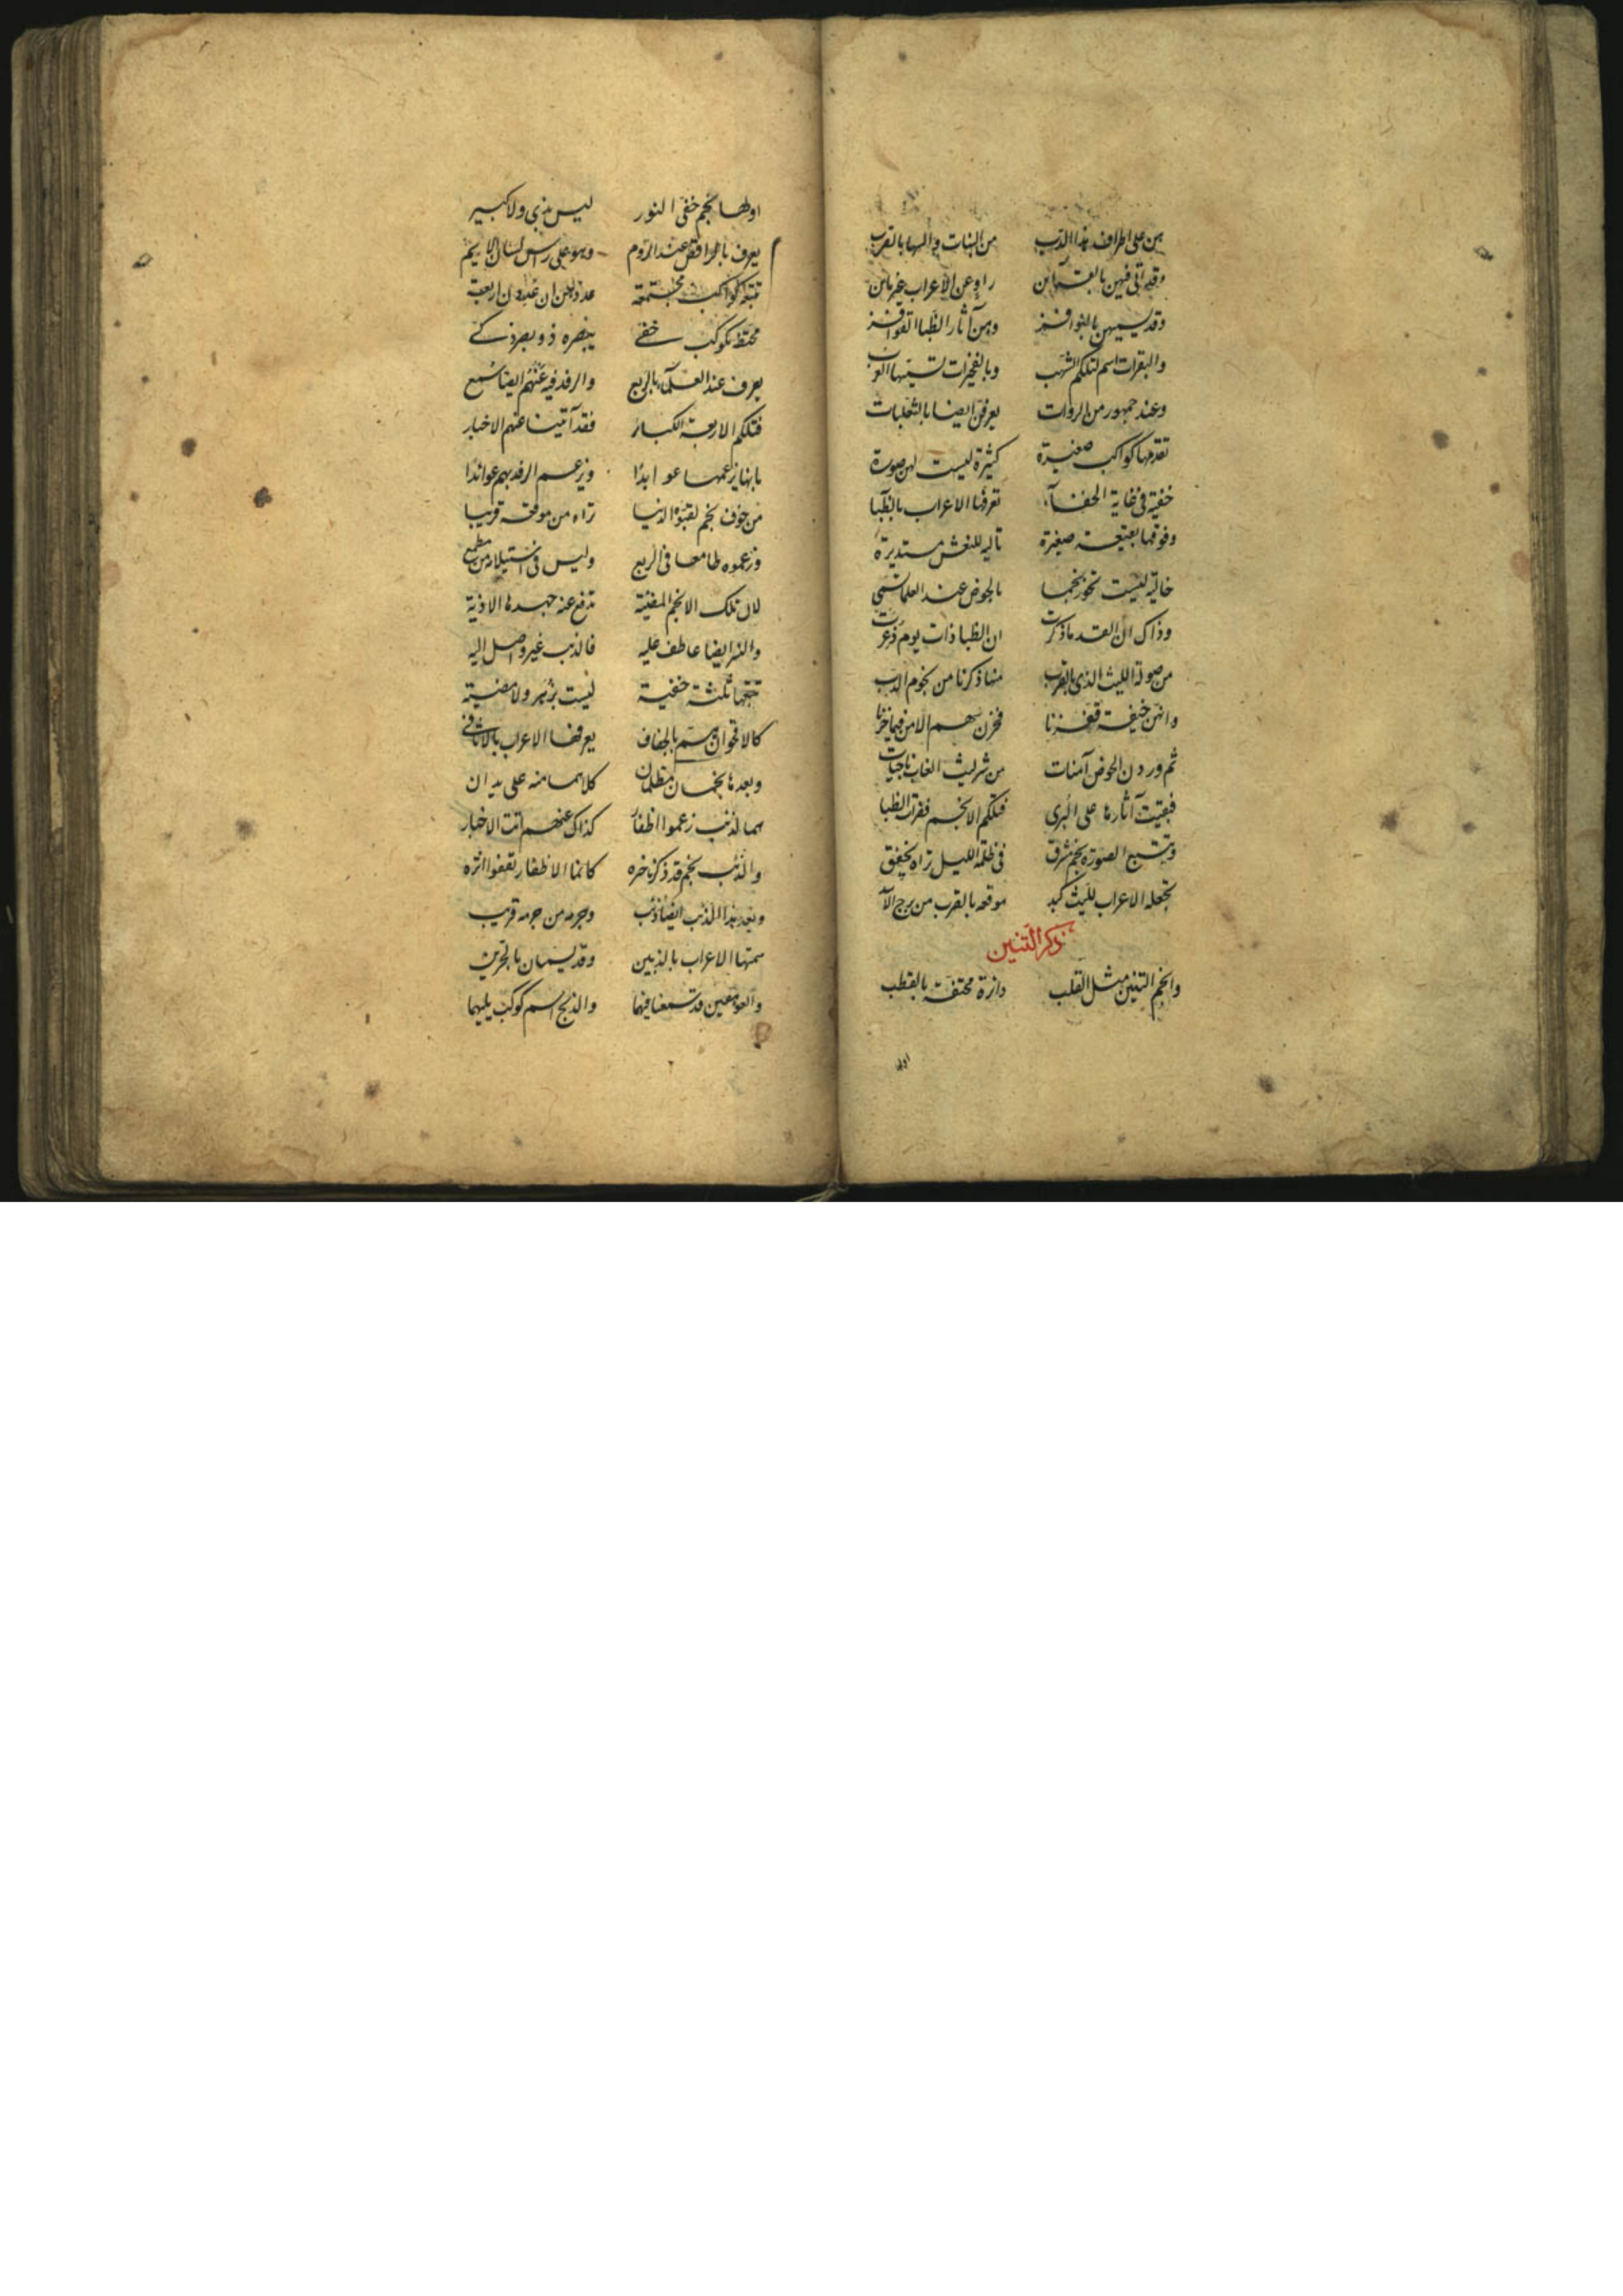 هن على اطراف هذا الدب من البنات واليها بالقرب
وقد اتى فيهن بالقرائن راو عن الاعراب غير مائن
وقد يسمين بالنوافز وهن آثار الظبا القوافز
والبقرات اسم لتلكم الشهب وبالفخرات تسميها العرب
وعند جمهور من الروات يعرفن ايضا بالثعلبات
تقدمها كواكب صغيرة كثيرة ليست لهن صورة
خفية فى غاية الخفآء تعرفها الاعراب بالظبآء
وفوقها بقيعة صغيرة تالية للنعش مستديرة
خالية ليست تحوز نجما بالحوض عند العلما تسمى
وذاك ان القد ما ذكرت ان الظبا ذات يوم ذعرت
من صولة الليث الذى بالقرب منها ذكرنا من نجوم الدب
وانهن خيفة قفزنا فخزن سهم الامن فيما خزنا
ثم وردن الحوض آمنات من شر ليث الغاب ناجيات
فبقيت آثارها على البرى فتلكم الانجم فقرات الظبا
ويتبع الصورة نجم مشرق فى ظلمة الليل تراه يخفق
تجعله الاعراب لليث كبد موقعه بالقرب من برج الاسد
ذكر التنين
وانجم التنين مثل القلب دائرة محتفة بالقطب
اولها
اولها نجم خفى النور ليس بذى ولا كبير
يعرف بالراقص عند الروم وهو على راس لسان الايم
تتبعه كواكب مجتمعة عدتهن ان عددن اربعة
محتط بكوكب خفى يبصره ذو بصر ذكى
يعرف عند العلمآء بالربع والرفد فيه عنهم ايضا سمع
فتلكم الاربعة الكبار فقد آتينا عنهم الاخبار
بانها يزعمها عوابدا وزعم الرفد بهم عوائدا
من خوف نجم لقبوه الذئبا تراه من موقعه قريبا
وزعموه طامعا فى الربع وليس فى استيلائه من مطمع
لان تلك الانجم المضية تدفع عنه جهدها الاذية
والنسر ايضا عاطف عليه فالذئب غير واصل اليه
تتبعها ثلثة خفية ليست بزهر ولا مضية
كالاقحوان يسم بالجفاف يعرفها الاعراب بالاثافى
وبعدها نجمان مظلمان كلاهما منه على يدان
هما لذئب زعموا اظفار كذاك عنهم اتت الاخبار
والذئب نجم قد ذكرنا خبره كانما الاظفار تقفوا اثره
وبعد هذا الذئب ايضا ذئب وجرمه من جرمه قريب
سمتها الاعراب بالذئبين وقد يسميان بالحرين
والعوهقين قد سمعنا فيهما والذيخ اسم كوكب يليهما